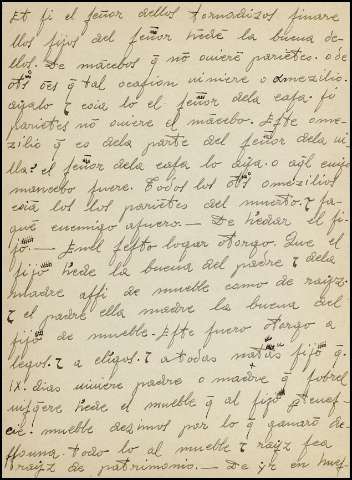 Et ſi el ſeñor dellos tornadizos finare
llos fijos del ſeñor hedẽ la buena de-
llos. De mãcebos q̃ nõ ouierẽ pariẽtes. o de
otºs õẽs q̃ tal ocaſion uiniere o omezilio.
ayalo ⁊ coia lo el ſeñor dela caſa. ſi
pariẽtes nõ ouiere el mãcebo. Eſte ome-
zilio q̃ es dela parte del ſeñor dela ui
lla: el ſeñor dela caſa lo aya. o aq̃l cuyo
mancebo fuere. Todos los otºs omezilios
coiã los los pariẽtes del muerto. ⁊ ſa-
quẽ enemigo afuero.— De hedar el fi-
jo.— Enel ſeſto logar otorgo. Que el
fijo hede la buena del padre ⁊ dela
madre aſſi de mueble como de raẏz.
⁊ el padre ella madre la buena del
fijo de mueble. Eſte fuero otorgo a
legos. ⁊ a cligos. ⁊ atodas natas fijo q̃.
IX. dias uiuiere padre o madre q̃ ſobrel
uiſq̃ere hede el mueble q̃ al fijo pteneſ-
cie. mueble dezimos por lo q̃ ganarõ de-
ſſouna. todo lo al mueble ⁊ raẏz ſea
raẏz de patrimonio.— De ẏr en hueſ-